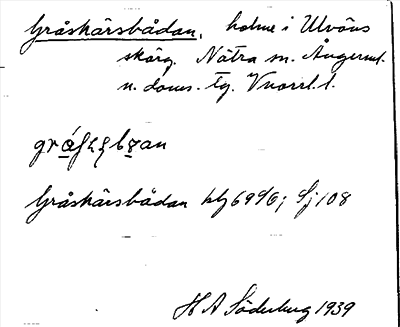 Gråskärsbådan, holme i Ulvöns
skärg. Nätra sn. Ångerml.
n. doms. tg. Vnorrl. l.
Gråskärsbådan blj 69 SO; Sj 108
H A Söderberg 1939